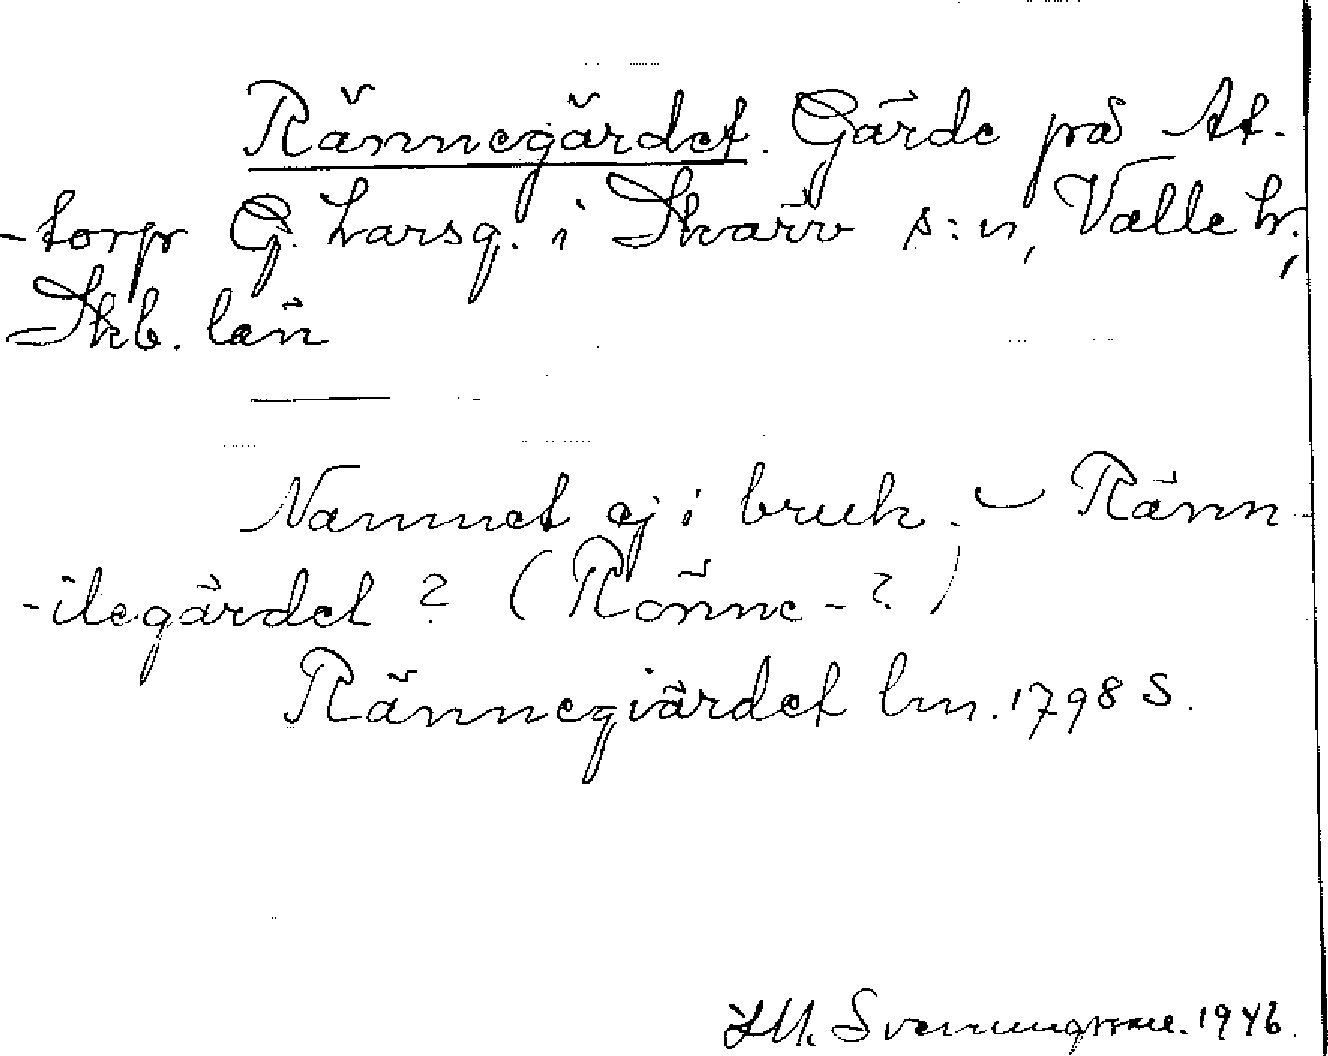 Rännegärdet. Gärde på At-
-torp G. Larsg. i Skärv s:n, Valle h.,
Skb. län
Namnet ej i bruk. – Ränn-
-ilegärdet? (Rönne-?)
Rännegiärdet lm. 1798 S.
Svenungsson. 1946.